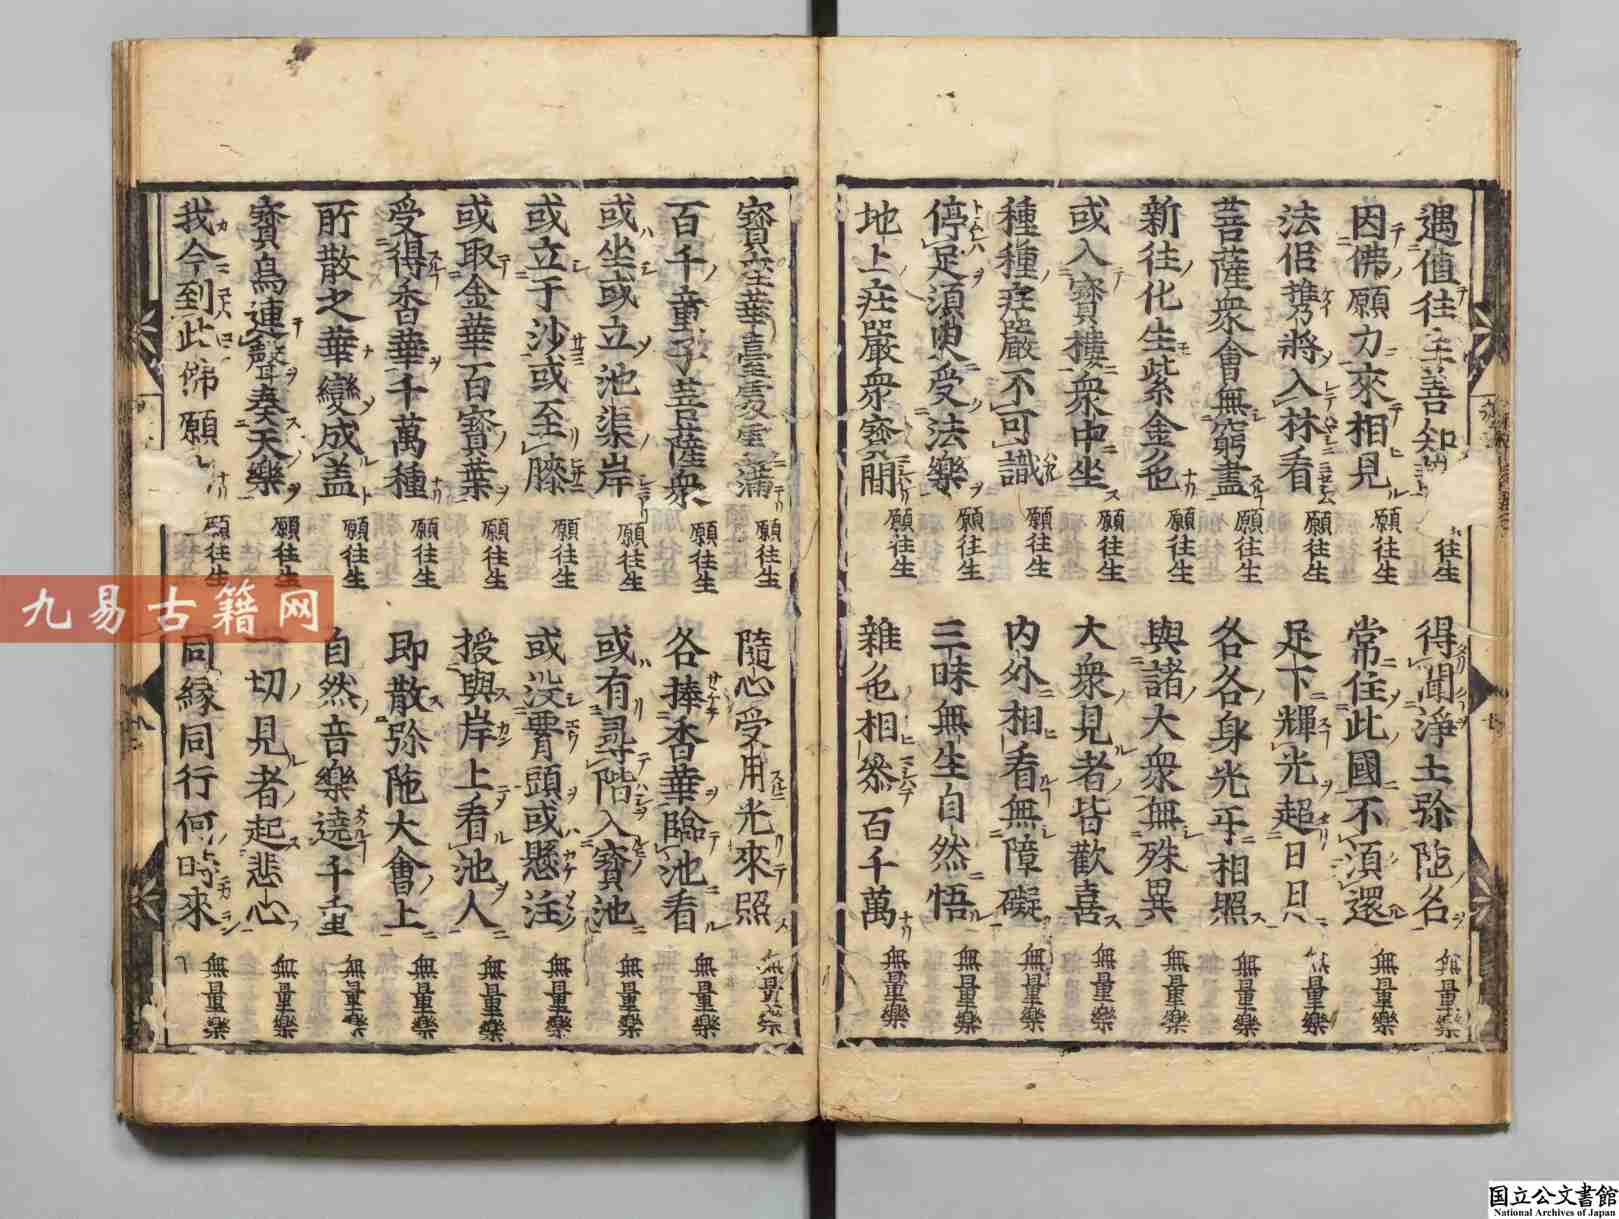 遇値往生善知
往生
得聞淨土弥陁名
無量樂
因佛願力來相見
願往生
常住此國不須還
無量樂
法侶携將入林看
願往生
足下輝光超日月
無量樂
菩薩衆會無窮盡
願往生
各各身光平相照
無量樂
新往化生紫金色
願往生
與諸大衆無殊異
無量樂
或入寳樓衆中坐
願往生
大衆見者皆歡喜
無量樂
種種荘嚴不可識
願往生
内外相看無障礙
無量樂
停足須臾受法樂
願往生
三昧無生自然悟
無量樂
地上荘嚴衆寳間
願往生
雜色相参百千萬
無量樂
寳座華臺處處滿
願往生
隨心受用光來照
無量樂
百千童子菩薩衆
願往生
各捧香華臨池看
無量樂
或坐或立池渠岸
願往生
或有尋階入寳池
無量樂
或立于沙或至膝
願往生
或没署頭或懸注
無量樂
或取金華百寳葉
願往生
授與岸上看池人
無量樂
受得香華千萬種
願往生
即散弥陁大會上
無量樂
所散之華變成盖
願往生
自然音樂遶千重
無量樂
寳鳥連聲奏天樂
願往生
一切見者起悲心
無量樂
我今到此佛願
願往生
同縁同行何時來
無量樂
九易古籍网
国立公文書館
National Archives of Japan